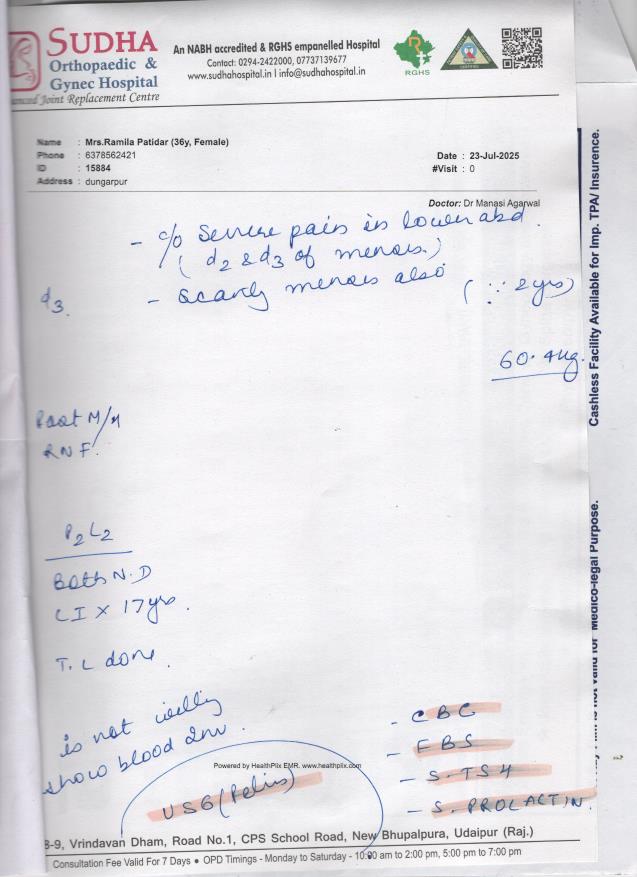 SUDHA
Orthopaedic &
Gynec Hospital
anced Joint Replacement Centre
An NABH accredited & RGHS empanelled Hospital
Contact: 0294-2422000, 07737139677
www.sudhahospital.in | info@sudhahospital.in
RGHS
Name : Mrs.Ramila Patidar (36y, Female)
Phone : 6378562421
ID : 15884
Address : dungarpur
Date : 23-Jul-2025
#Visit : 0
Doctor: Dr Manasi Agarwal
- c/o severe pain in lower abd.
( d2 & d3 of menses)
d3.
- scanty menses also
( ∵ 2 yrs)
60.4kg.
Past M/H
RNF.
P2L2
Both N.D
LI X 17yrs.
T.L done.
is not willing
show blood Inv.
- CBC
- FBS
- S.TSH
- S. PROLACTIN.
Powered by HealthPlix EMR. www.healthplix.com
USG (Pelvis)
8-9, Vrindavan Dham, Road No.1, CPS School Road, New Bhupalpura, Udaipur (Raj.)
Consultation Fee Valid For 7 Days ● OPD Timings - Monday to Saturday - 10:00 am to 2:00 pm, 5:00 pm to 7:00 pm
Cashless Facility Available for Imp. TPA/ Insurence.
is not valid for Medico-legal Purpose.